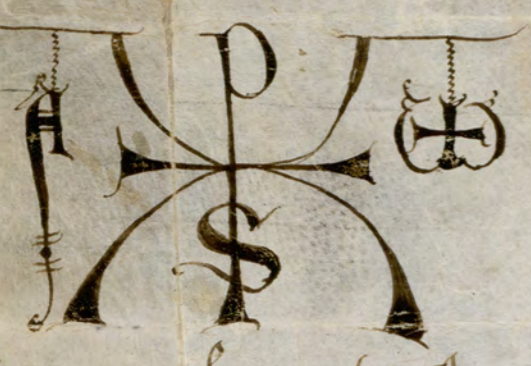 A XPS ω